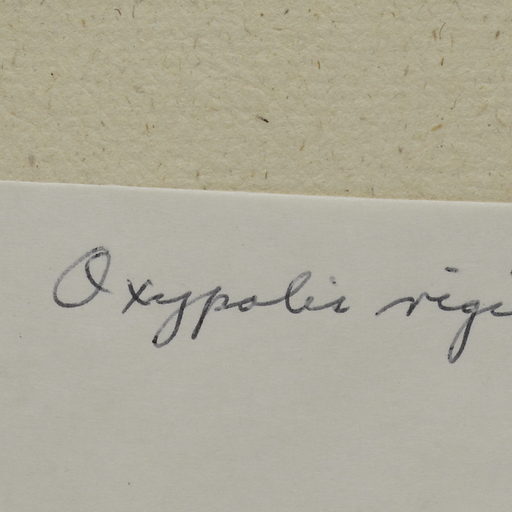 Oxypolis rigi